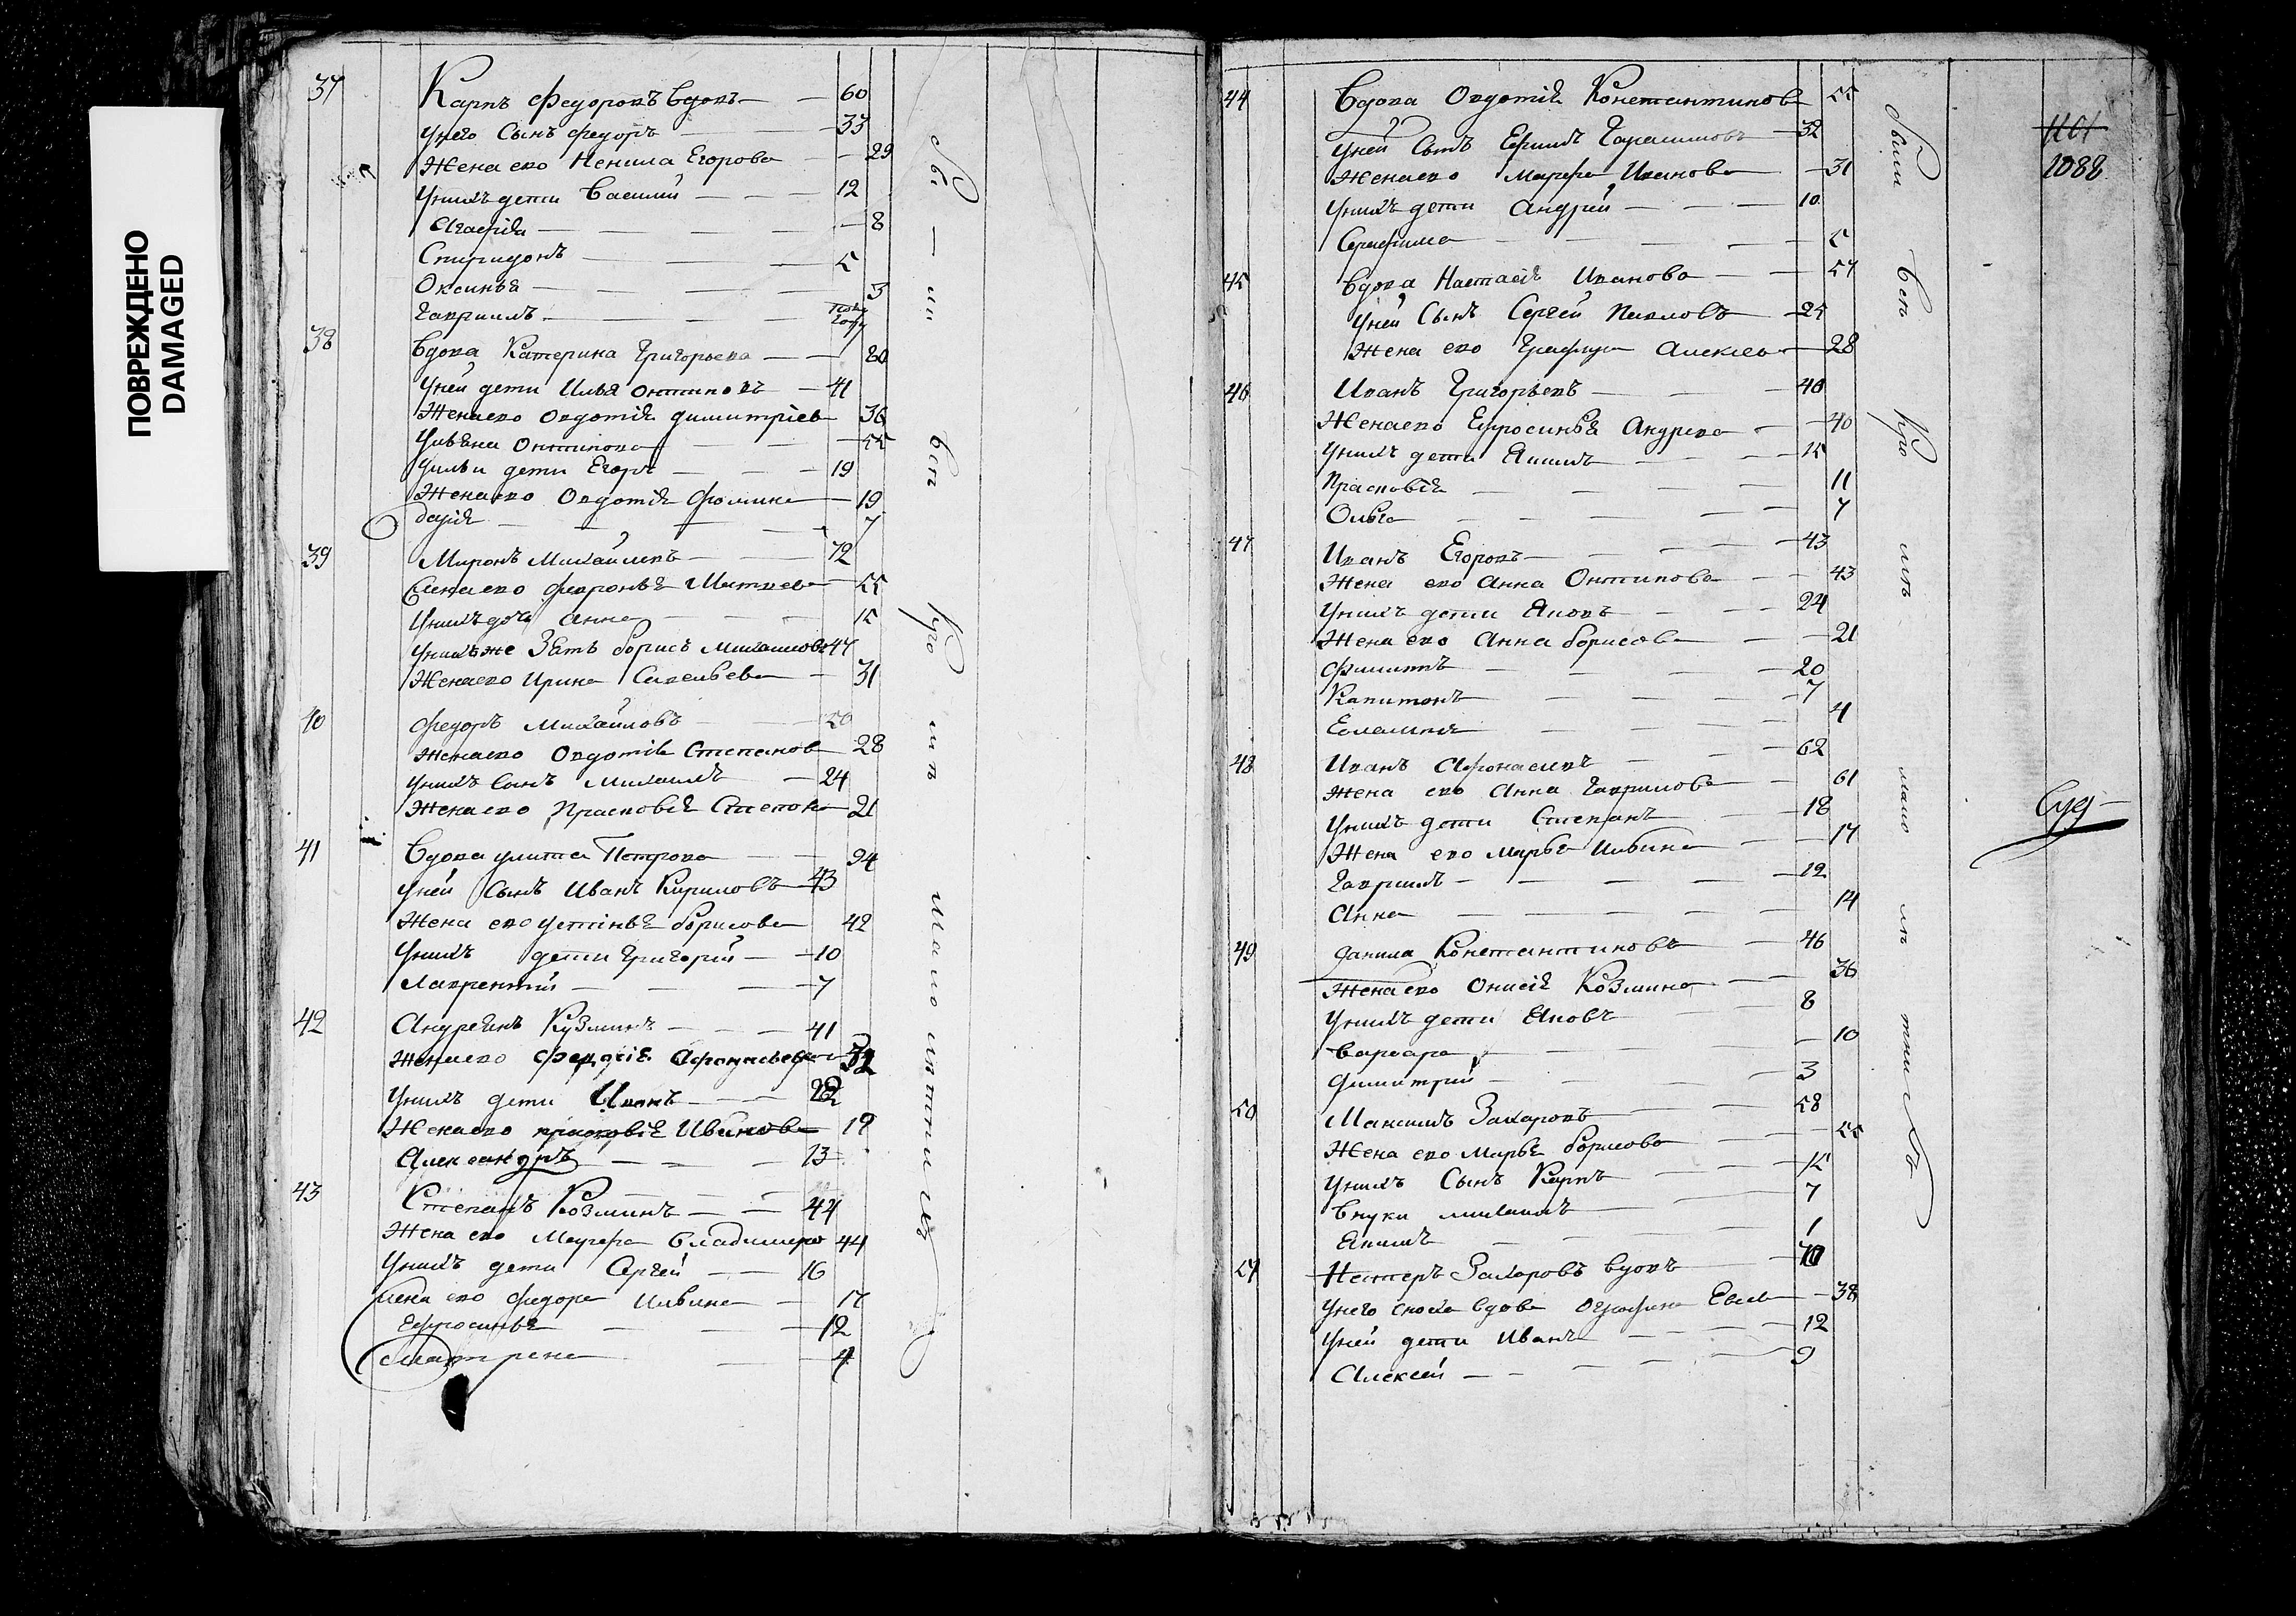 ПОВРЕЖДЕНО
DAMAGED
37 Карпъ Федоровъ вдовъ 60
унего Сынъ Федоръ 33
Жена ево Ненила Егорова 29
Унихъ дети Василий 12
Агафия 8
Спиридонъ 5
Оксинья 3
Гаврилъ
38 Вдова Катерина Григорьева 80
Уней дети Илья Онтиповъ 41
Жена ево Овдотія Димитріев 36
Ульяна Онтипова 55
Уильи дети Егоръ 19
Жена ево Овдотія Фомина 19
Дарія 7
39 Миронъ Михайлевъ 72
Жена ево Февронья Матвева 55
Унихъ дочь Анна 15
Унихъ же Зять борисъ Михаилов 47
Жена ево Ирина Савельева 31
40 Федоръ Михайловъ 50
Жена ево Овдотія Степанов 28
Унихъ Сынъ Михаилъ 24
Жена ево Прасковья Степан 21
41 Вдова улита Петрова 94
Уней Сынъ Иванъ Кириловъ 43
Жена ево устинья борисова 42
Унихъ дети Григорий 10
Лаврентий 7
42 Андреянъ Кузминъ 41
Жена ево Афонасьева
Унихъ дети Иванъ
Жена ево прасковія Иванова 19
Александръ 13
43 Степанъ Козминъ 44
Жена ево Марфа Владимеро 44
Унихъ дети Сергей 16
Жена ево Федора Ильина 17
Ефросинья 12
Матрена 4
44 Вдова Овдотія Константинов 55
Уней Сынъ Ефимъ Гарасимовъ 32
Жена ево Марфа Иванова 31
Унихъ дети Андрей 10
Серафима 5
45 Вдова Настасія Иванова 57
Уней Сынъ Сергей Павловъ 25
Жена ево Алексев 28
46 Иванъ Григорьевъ 40
Жена ево Ефросинья Андрева 40
Унихъ дети Якимъ 15
Прасковія 11
Ольга 7
47 Иванъ Егоровъ 43
Жена ево Анна Онтипова 43
Унихъ дети Яковъ 24
Жена ево Анна борисова 21
Филипъ 20
Капитонъ 7
4
48 Иванъ Афонасиевъ 62
Жена ево Анна Гаврилова 61
Унихъ дети Степанъ 18
Жена ево Марья Ильина 17
Гаврилъ 12
Анна 14
49 Данила Константиновъ 46
Жена ево Онисія Козмина 36
Унихъ дети Яковъ 8
Варвара 10
Димитрий 3
50 Максимъ Захаровъ 58
Жена ево Марья борисова 55
Унихъ Сынъ Карпъ 15
Внуки михаилъ 7
Якимъ 1
Нестеръ Захаровъ вдовъ 70
Унего сноха вдова Ографина 38
Уней дети Иванъ 12
Алексей 9
1088